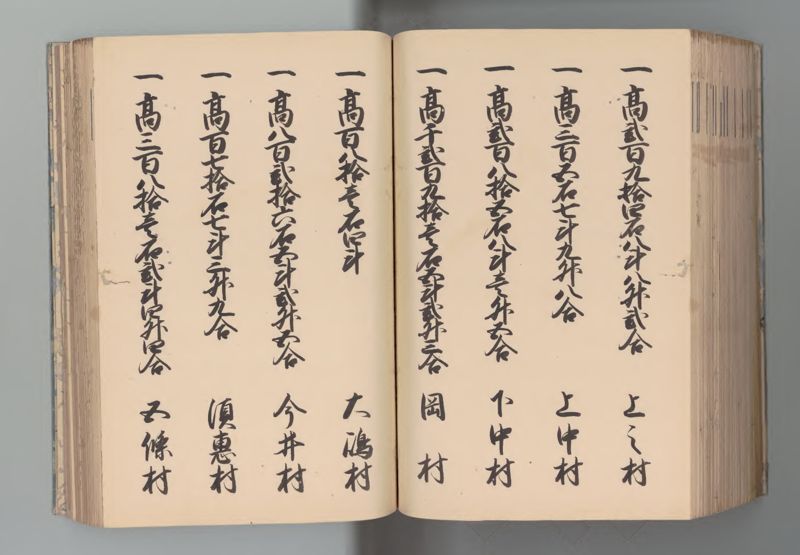 一高貳百九拾四石八斗八升貳合 上之村
一高三百五石七斗九升八合 上中村
一高貳百八拾五石八斗壱升五合 下中村
一高千貳百九拾壱石五斗貳升三合 岡村
一高百八拾壱石四斗 大嶋村
一高八百貳拾六石五斗貳升五合 今井村
一高百七拾石七斗三升九合 須惠村
一高三百八拾壱石貳斗四升四合 五條村